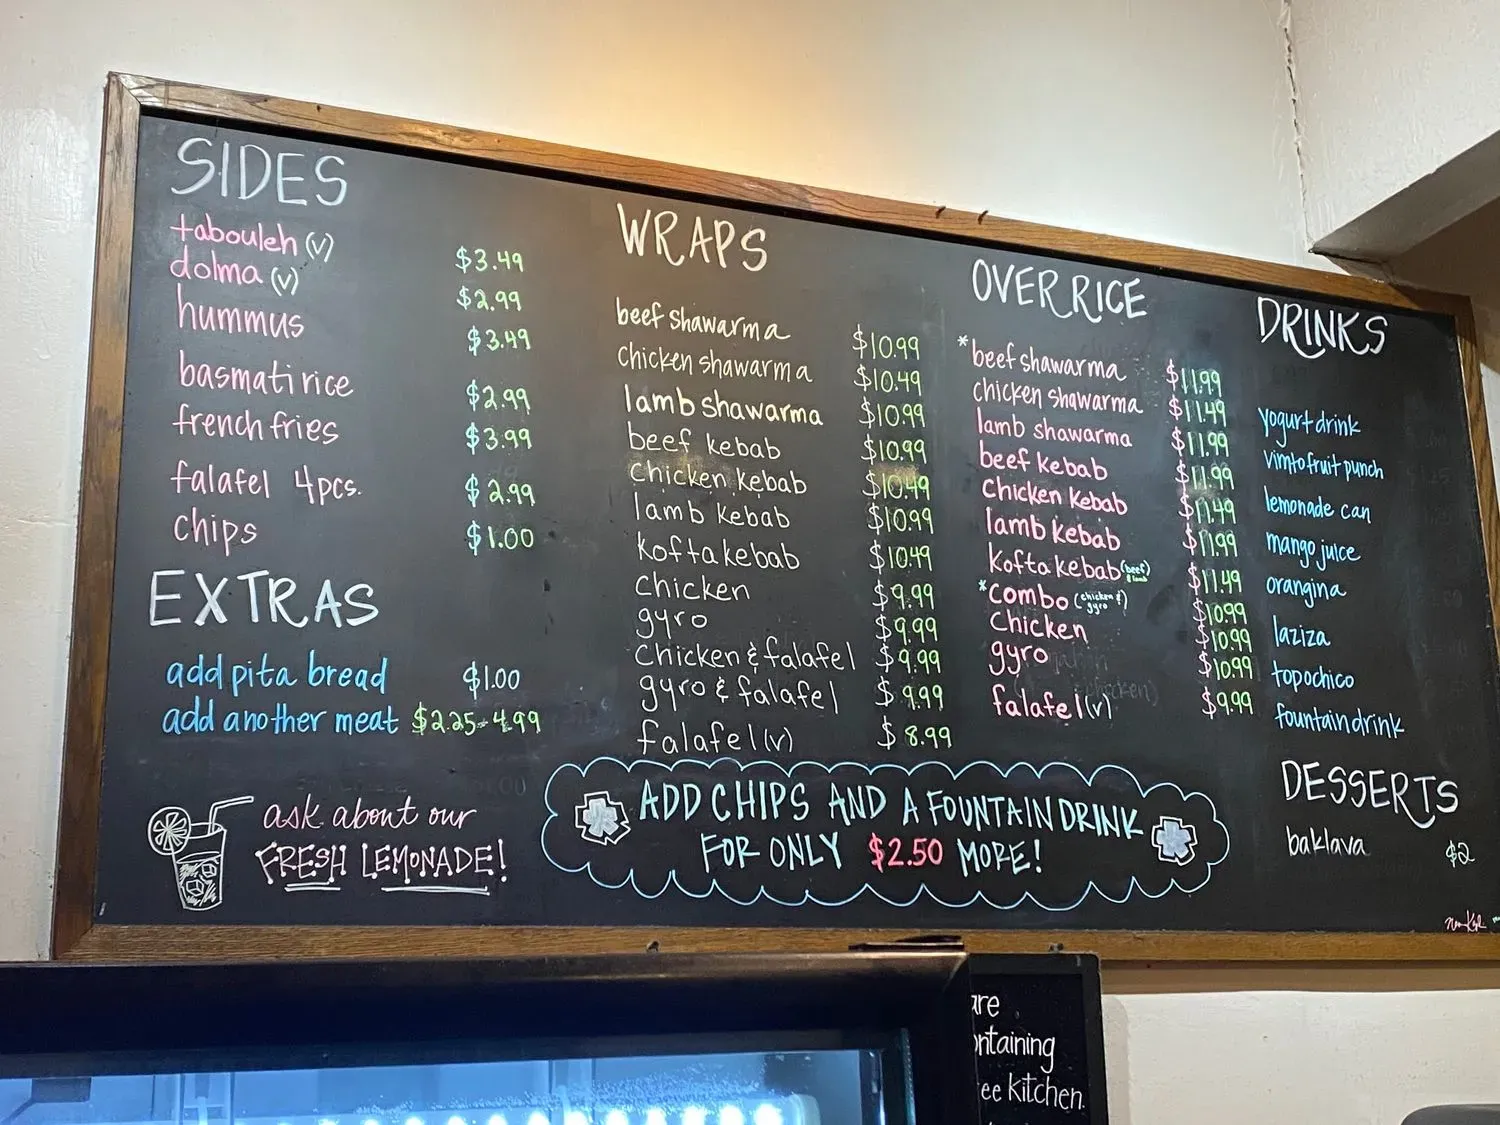 SIDES
tabouleh (v) $3.49
dolma (v) $2.99
hummus $3.49
basmati rice $2.99
french fries $3.99
falafel 4pcs. $2.99
chips $1.00
EXTRAS
add pita bread $1.00
add another meat $2.25-4.99
ask about our
FRESH LEMONADE!
WRAPS
beef shawarma $10.99
chicken shawarma $10.49
lamb shawarma $10.99
beef kebab $10.99
chicken kebab $10.49
lamb kebab $10.99
kofta kebab $10.49
chicken $9.99
gyro $9.99
chicken & falafel $9.99
gyro & falafel $9.99
falafel (v) $8.99
OVER RICE
*beef shawarma $11.99
chicken shawarma $11.49
lamb shawarma $11.99
beef kebab $11.99
chicken kebab $11.49
lamb kebab $11.99
kofta kebab (beef & lamb) $11.49
*combo (chicken & gyro) $10.99
chicken $10.99
gyro $10.99
falafel (v) $9.99
DRINKS
yogurt drink
vimto fruit punch
lemonade can
mango juice
orangina
laziza
topochico
fountain drink
DESSERTS
baklava $2
ADD CHIPS AND A FOUNTAIN DRINK
FOR ONLY $2.50 MORE!
are
ontaining
ee kitchen.